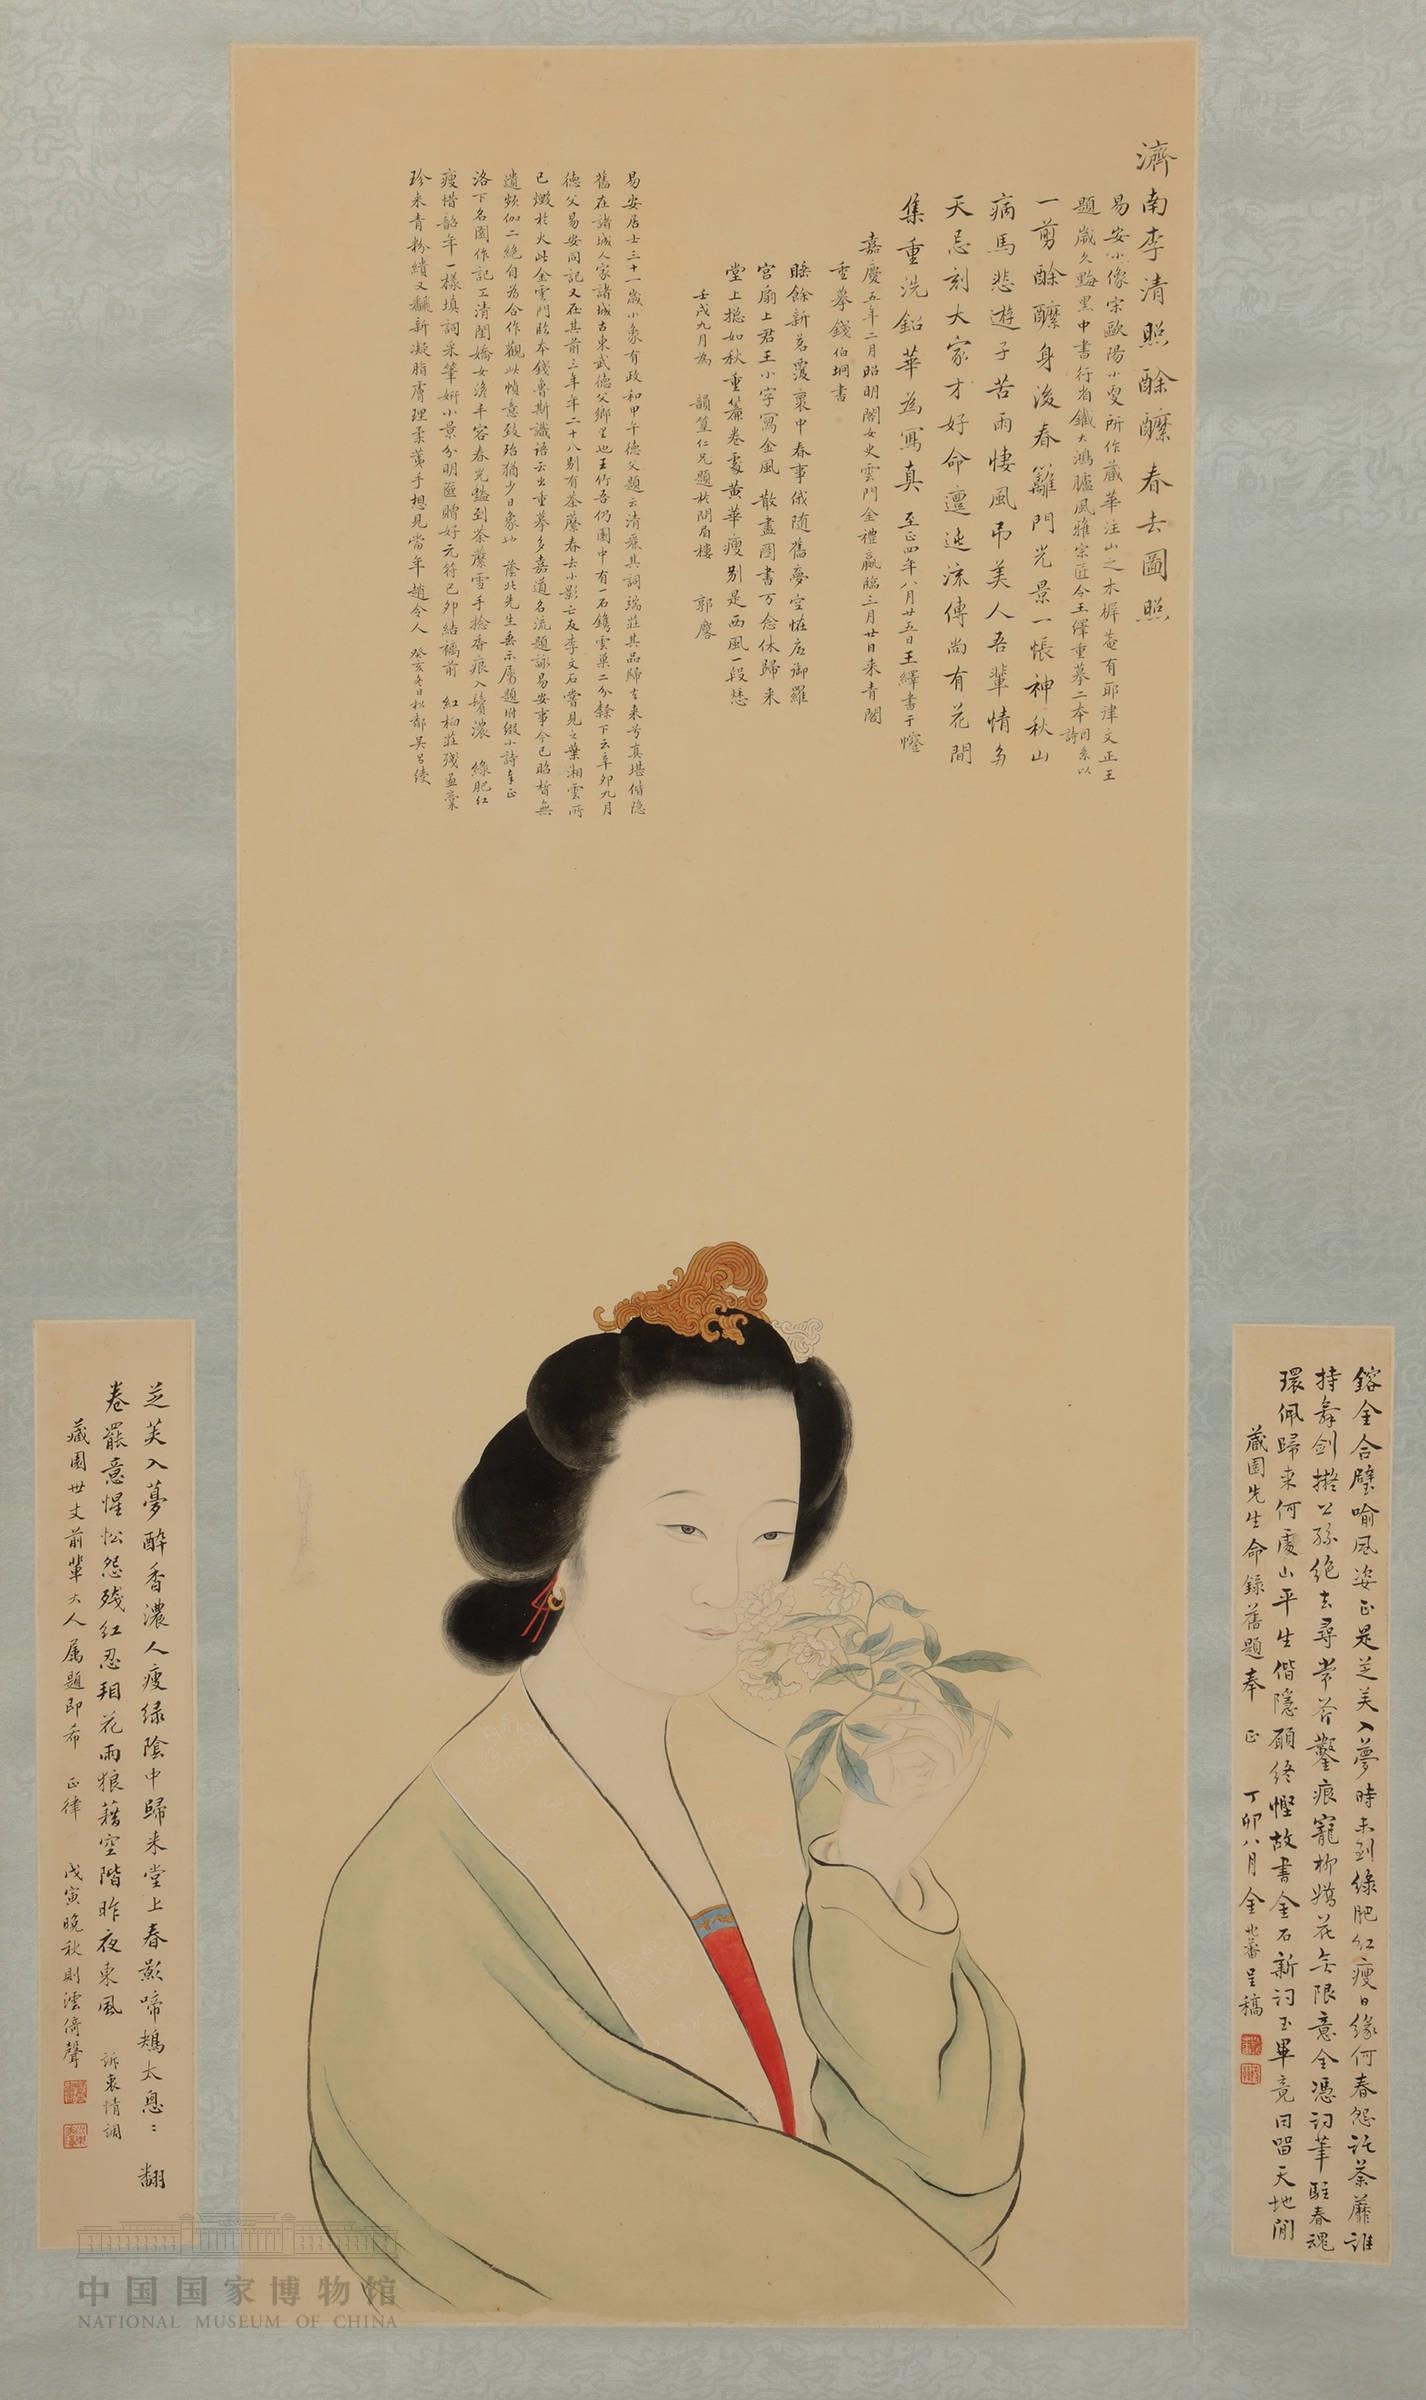 濟南李清照酴醾春去圖照
易安小像宋歐陽小叟所作藏華注山之木樨菴有耶律文正王
題歲久黝黑中書行省鐵大鴻臚風雅宗匠令王繹重摹二本因系以
詩
一剪酴醾身後春籬門光景一悵神秋山
病馬悲遊子苦雨悽風吊美人吾輩情多
天忌刻大家才好命邅迍流傳尚有花間
集重洗鉛華為寫真 至正四年八月廿五日王繹書于
嘉慶五年二月昭明閣女史雲門金禮嬴臨三月廿日来青閣
重摹錢伯坰書
睡餘新茗覆裹中春事俄随舊夢空恠底御羅
宮扇上君王小字寫金風 散盡圖書万念休歸来
堂上捴如秋重簾卷處黃華瘦别是西風一段愁
壬戌九月為 韻篁仁兄題於問眉樓 郭麐
易安居士三十一歲小象有政和甲午德父題云清麗其詞端莊其品歸去来兮真堪偕隐
舊在諸城人家諸城古東武德父鄉里也王竹吾仍園中有一石鐫雲巢二分隸下云辛卯九月
德父易安同記又在其前三年年二十八别有荼蘼春去小影亡友李文石嘗見之葉湘雲所
已燬於火此金雲門晥本錢魯斯識語云出重摹多嘉道名流題詠易安事今已昭晳無
遺頻伽二絶自為合作觀此幀意致殆猶少日象也 蔭北先生垂示属題附綴小詩奉正
洛下名園作記工清閨嬌女澹丰容春光豔到荼蘼雪手捻香痕入鬢濃 綠肥红
瘦惜韶年一樣填詞采筆妍小景分明匳贈好元符己卯結褵前 紅柏莊殘畫稾
珍来青粉繢又翻新凝脂膚理柔荑手想見當年趙令人 癸亥冬日松鄰吴昌綬
鎔金合璧喻風姿正是芝芙入夢時未到綠肥红瘦日缘何春怨託荼蘼誰
持舞劍擬公孫絶去尋常斧鑿痕寵柳嬌花無限意全憑詞筆駐春魂
環佩歸来何處山平生偕隱願终慳故書金石新詞玉畢竟同留天地間
藏園先生命録舊題奉 正 丁卯八月金兆蕃呈稿
芝芙入夢醉香濃人瘦绿陰中歸来堂上春歸啼鴂太息怱怱 翻
卷罷意惺忪怨殘红忍拍花雨狼藉空階昨夜東風 訴衷情調
藏園世丈前輩大人属題即希 正律 戊寅晚秋則澐倚聲
中国国家博物馆
NATIONAL MUSEUM OF CHINA